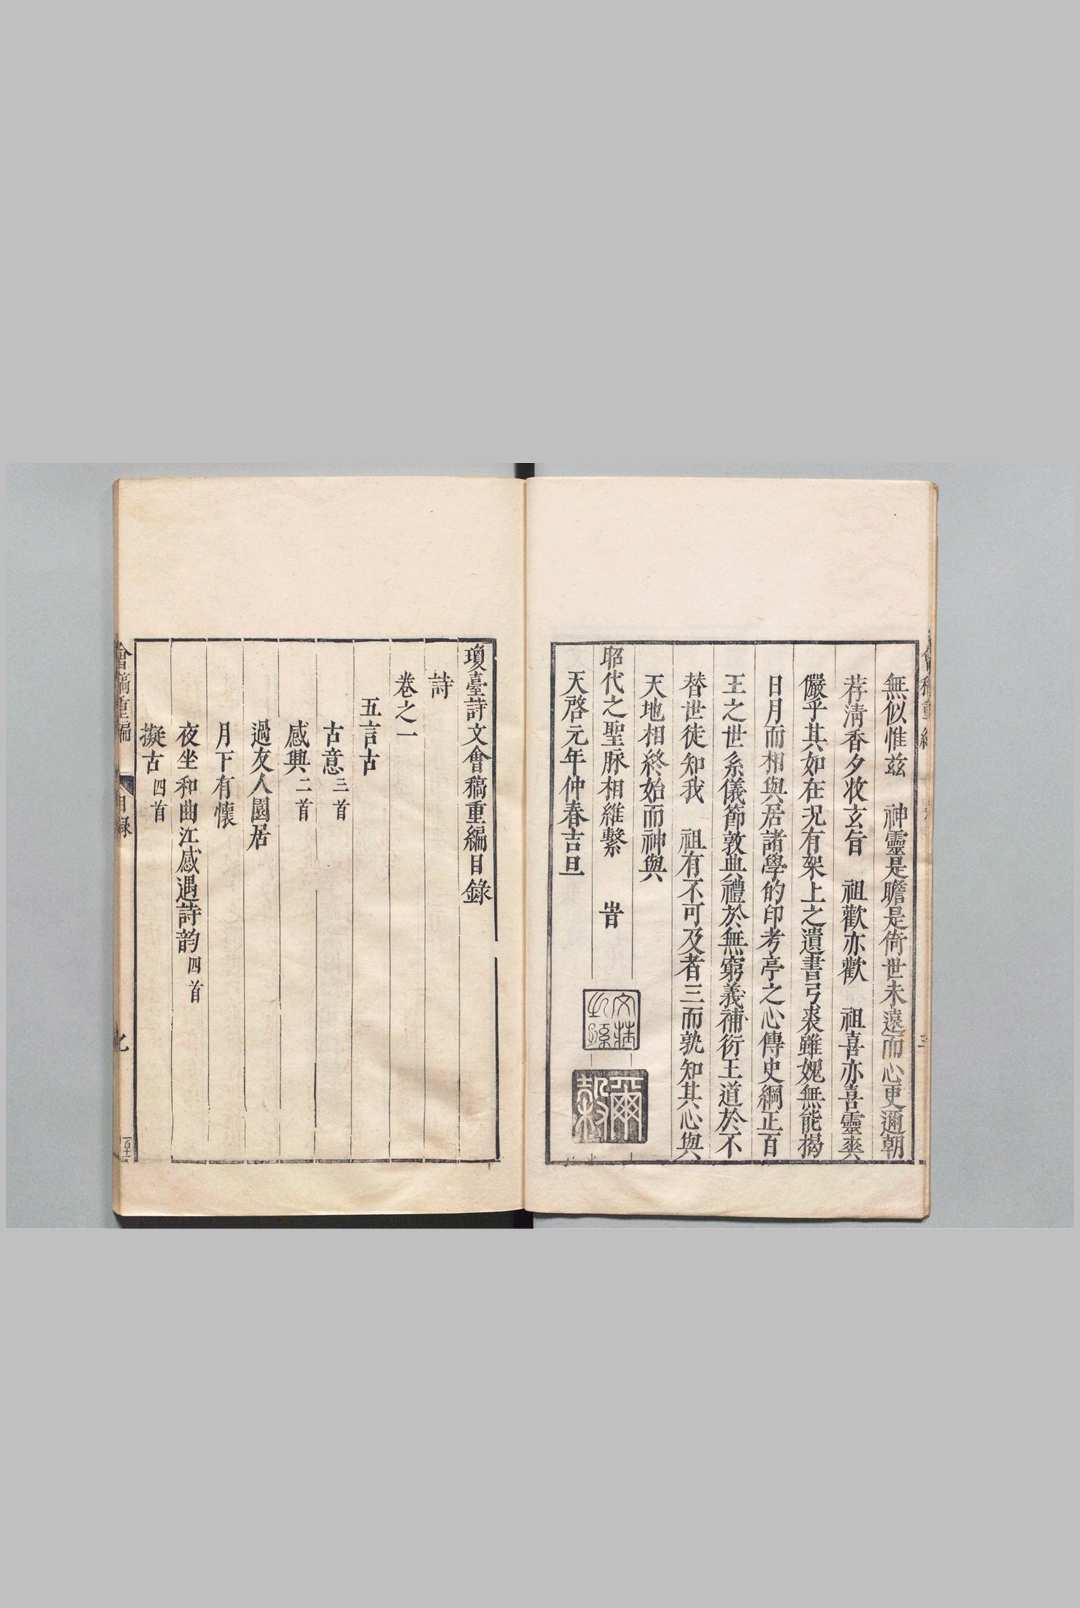 無似惟兹　神靈是瞻是倚世未遠而心更邇朝
荐清香夕收玄旨　祖歡亦歡　祖喜亦喜靈爽
儼乎其如在况有架上之遺書弓裘雖媿無能揭
日月而相與居諸學的印考亭之心傳史綱正百
王之世系儀節敦典禮於無窮義補衍王道於不
替世徒知我　祖有不可及者三而孰知其心與
天地相終始而神與
昭代之聖脉相維繫　旹
天啓元年仲春吉旦
文莊之孫
爾穀
瓊臺詩文會稿重編目錄
詩
卷之一
五言古
古意三首
感興二首
過友人園居
月下有懷
夜坐和曲江感遇詩韵四首
擬古四首
會稿重編　目錄